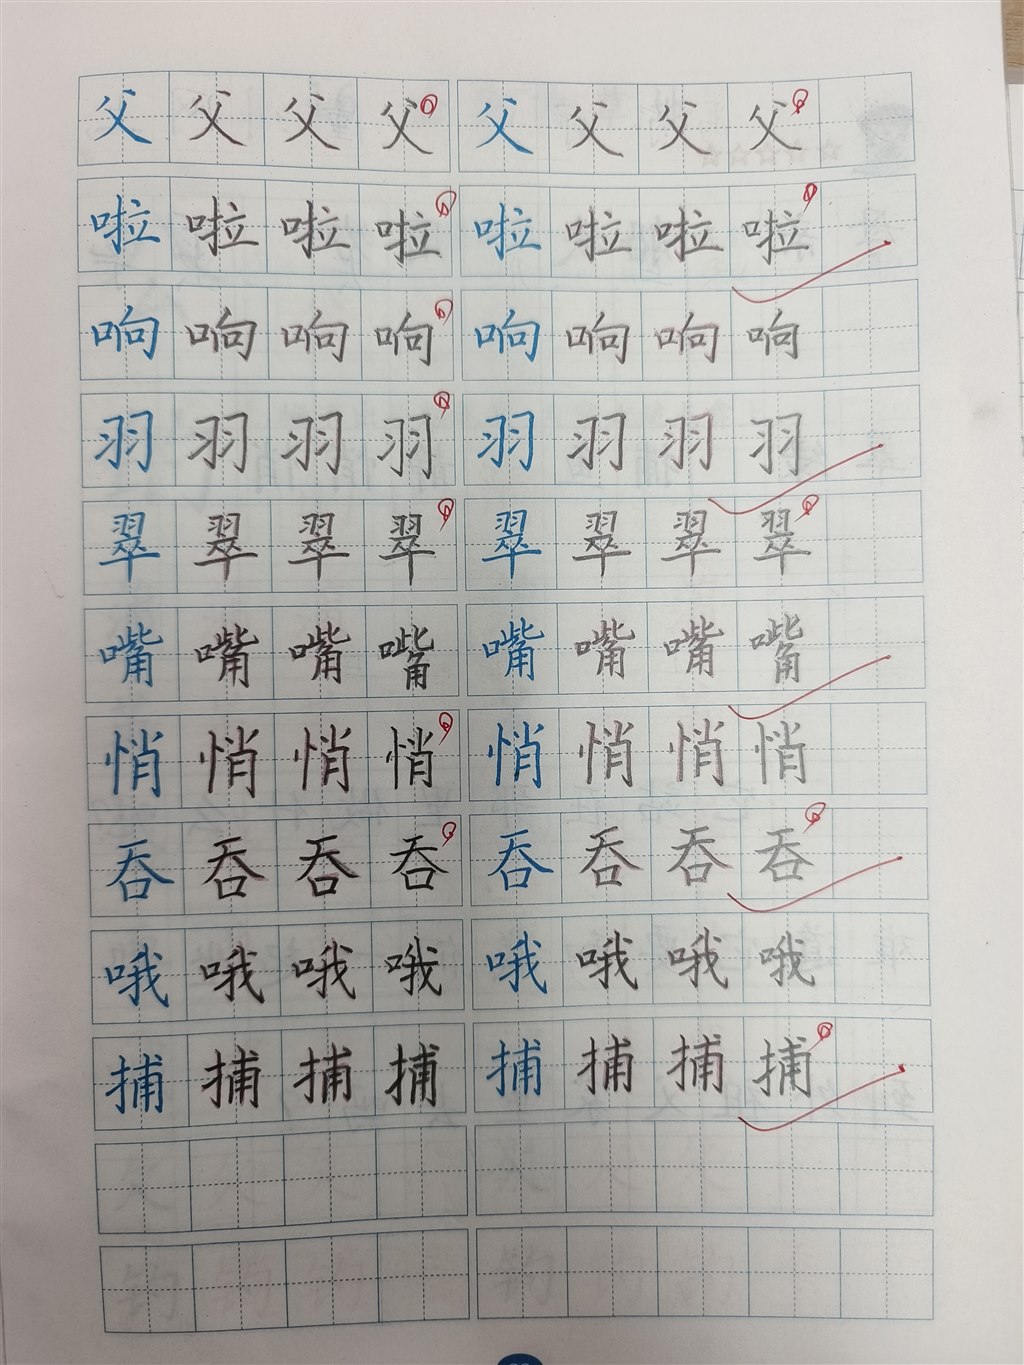 父父父父父父父父
啦啦啦啦啦啦啦啦
响响响响响响响响
羽羽羽羽羽羽羽羽
翠翠翠翠翠翠翠翠
嘴嘴嘴嘴嘴嘴嘴嘴
悄悄悄悄悄悄悄悄
吞吞吞吞吞吞吞吞
哦哦哦哦哦哦哦哦
捕捕捕捕捕捕捕捕